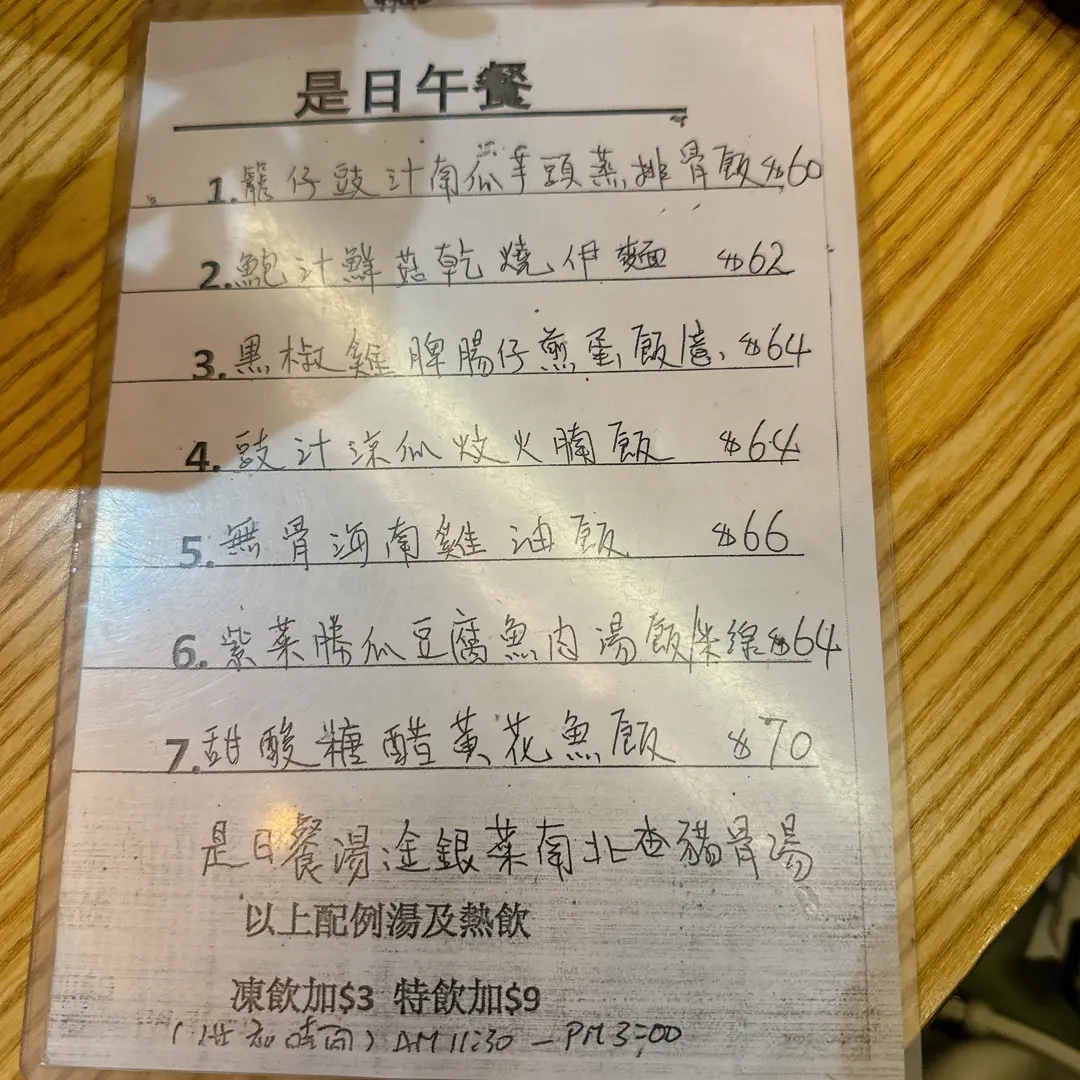 是日午餐
1. 鬚仔豉汁南瓜芋頭蒸排骨飯 $60
2. 鮑汁鮮菇乾燒伊麵 $62
3. 黑椒雞脾腸仔煎蛋飯意 $64
4. 豉汁涼瓜炆火腩飯 $64
5. 無骨海南雞油飯 $66
6. 紫菜勝瓜豆腐魚肉湯飯/米線 $64
7. 甜酸糖醋黃花魚飯 $70
是日餐湯金銀菜南北杏豬骨湯
以上配例湯及熱飲
凍飲加$3 特飲加$9
(供應時間) AM 11:30 — PM 3:00